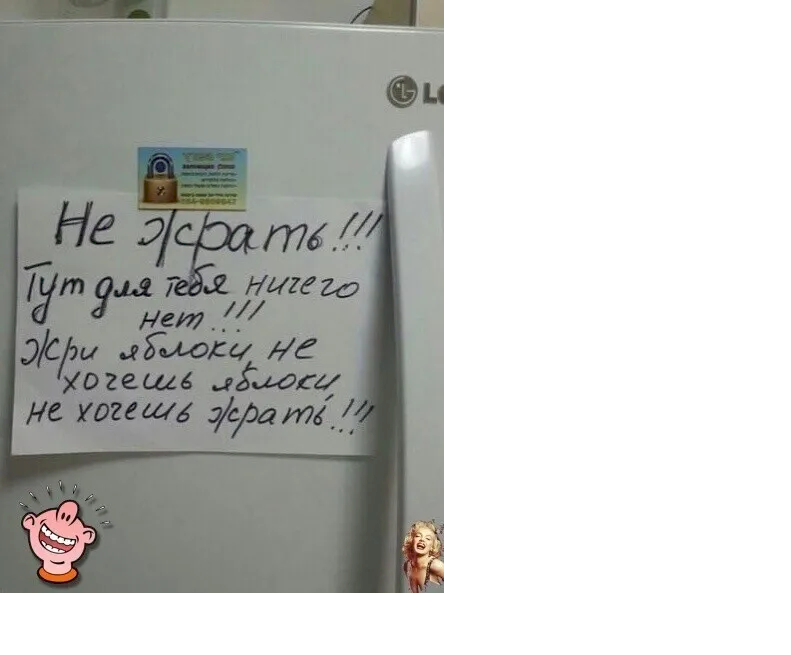 LG
Не жрать!!!
Тут для тебя ничего
нет!!!
Жри яблоки, не
хочешь яблоки,
не хочешь жрать!!!